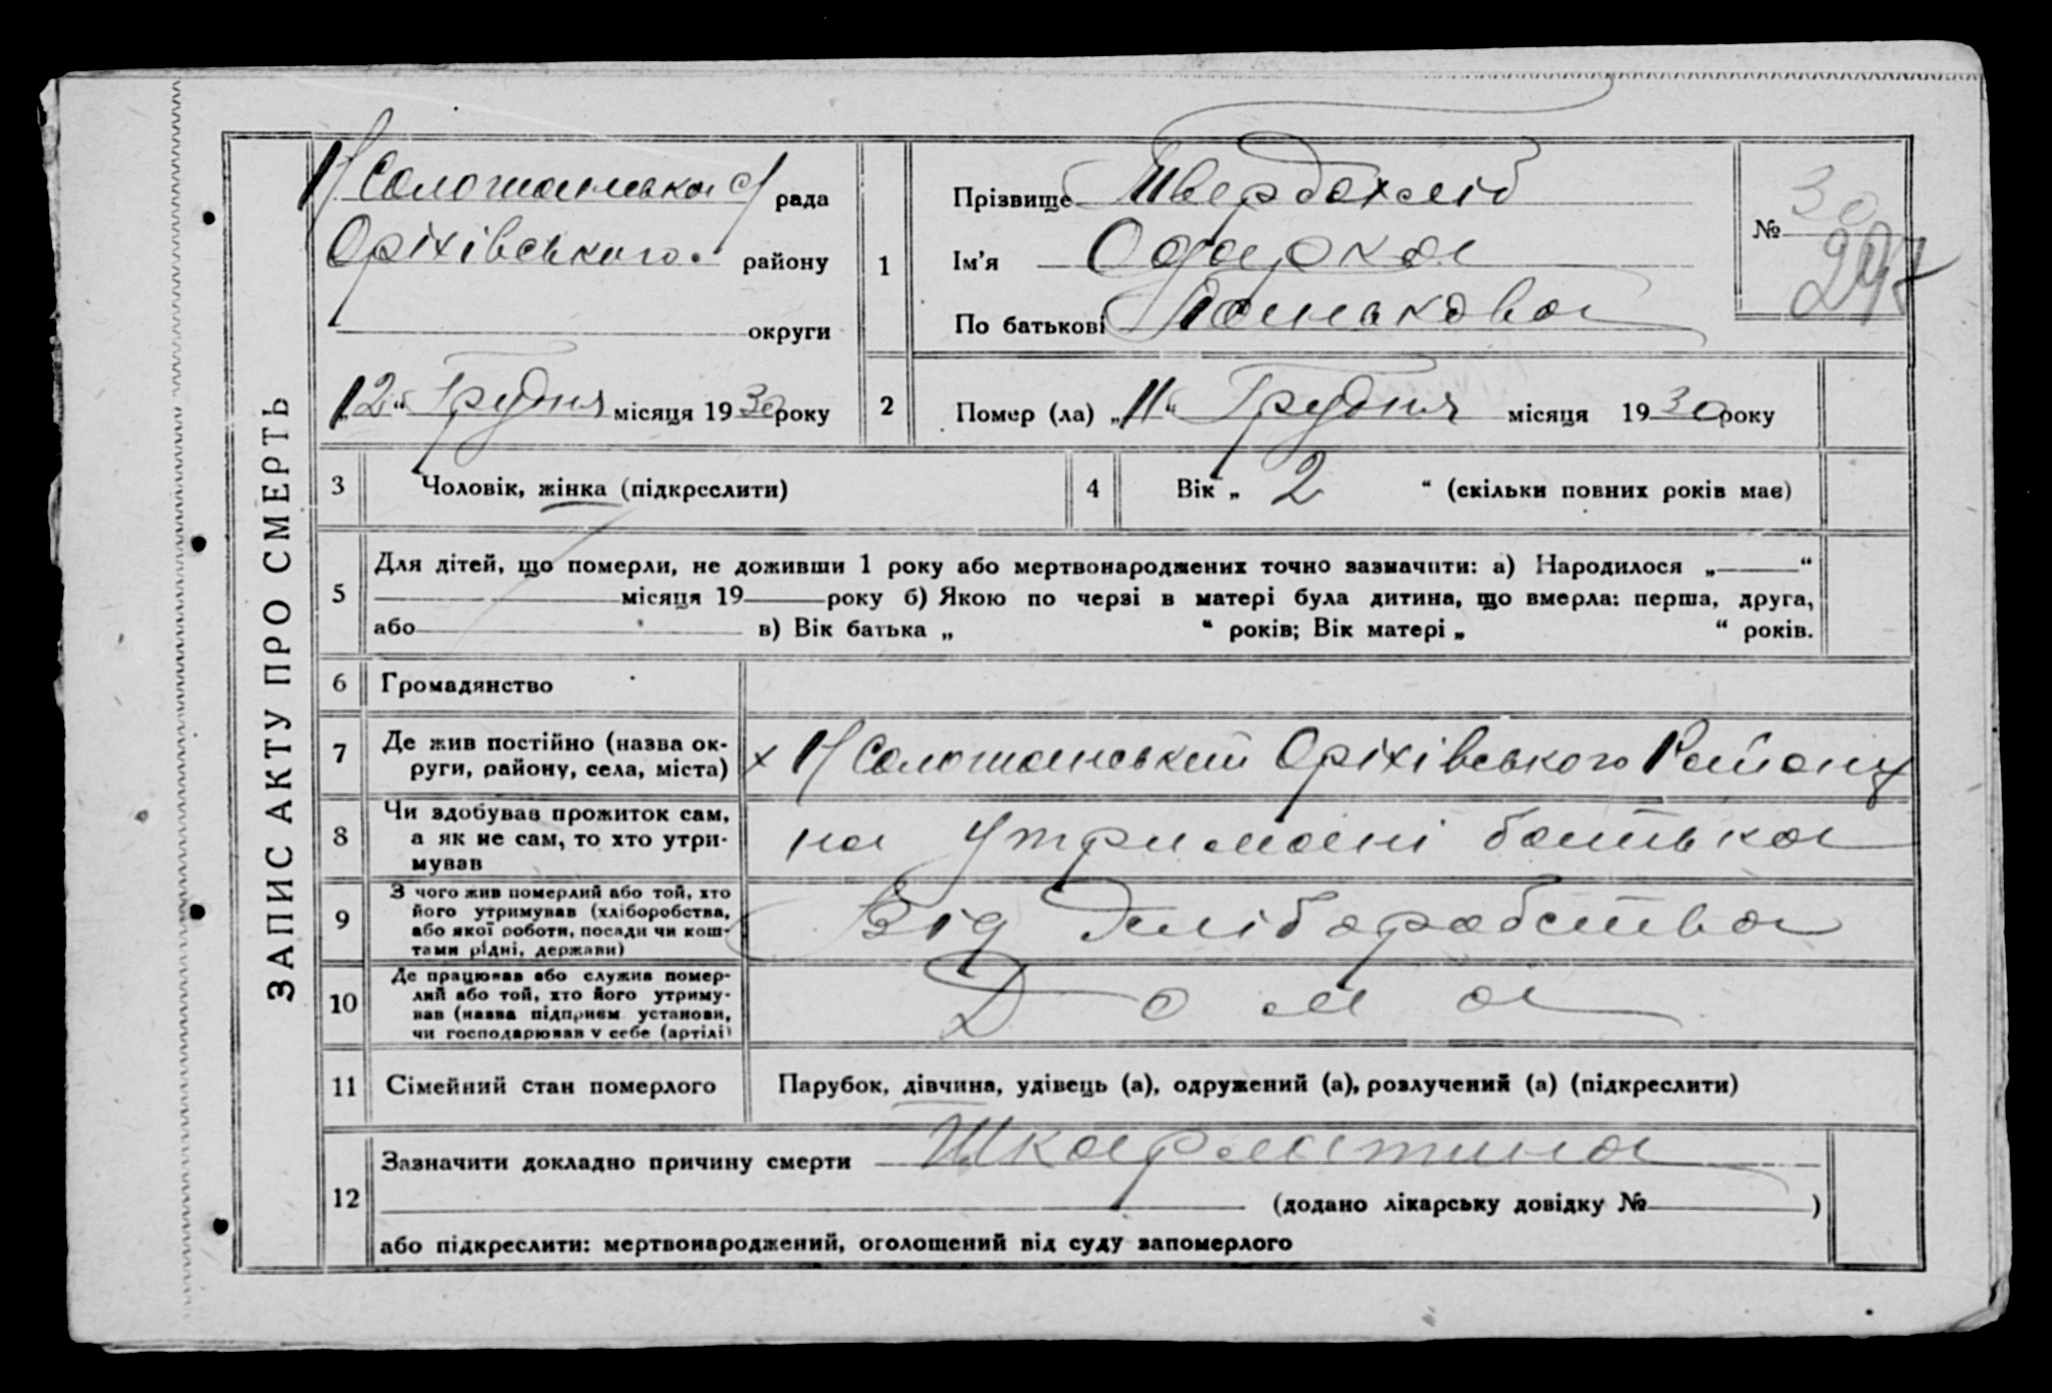 ЗАПИС АКТУ ПРО СМЕРТЬ
Н Солошинська с/ рада
Оріхівського району
округи
„12“ Грудня місяця 1930 року
1
Прізвище Твердохліб
Ім'я Одарка
По батькові
№ 30
297
2
Помер (ла) „11“ Грудня місяця 1930 року
3
Чоловік, жінка (підкреслити)
4
Вік „ 2 “ (скільки повних років має)
5
Для дітей, що померли, не доживши 1 року або мертвонароджених точно зазначити: а) Народилося „ “
місяця 19 року б) Якою по черзі в матері була дитина, що вмерла: перша, друга,
або в) Вік батька „ “ років; Вік матері „ “ років.
6
Громадянство
7
Де жив постійно (назва ок-
руги, району, села, міста)
х Н Солошинський Оріхівського Району
8
Чи здобував прожиток сам,
а як не сам, то хто утри-
мував
на утримані батька
9
З чого жив померлий або той, хто
його утримував (хліборобства,
або якої роботи, посади чи кош-
тами рідні, держави)
Від Хліборобства
10
Де працював або служив помер-
лий або той, хто його утриму-
вав (назва підприєм установи,
чи господарював у себе (артілі)
Дома
11
Сімейний стан померлого
Парубок, дівчина, удівець (а), одружений (а), розлучений (а) (підкреслити)
12
Зазначити докладно причину смерти Шкарлатина
(додано лікарську довідку № )
або підкреслити: мертвонароджений, оголошений від суду запомерлого